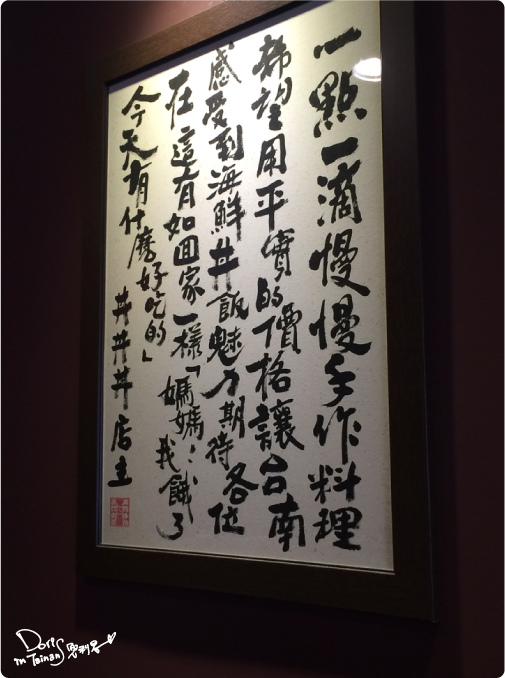 一點一滴慢慢手作料理
希望用平實的價格讓台南
感受到海鮮丼飯魅力期待各位
在這有如回家一樣「媽媽!我餓了
今天有什麼好吃的」
丼丼丼店主
Doris
in Tainan